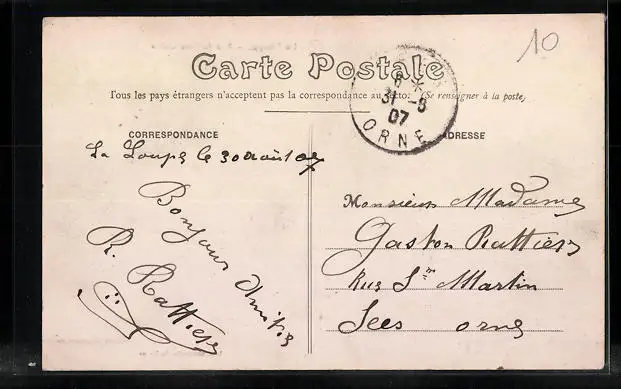 10
Carte Postale
Tous les pays étrangers n'acceptent pas la correspondance au recto. (Se renseigner à la poste)
6 *
31 - 8
07
ORNE
CORRESPONDANCE
ADRESSE
La Loupe le 30 août 07
Bonjour Amitiés
R. Rattier
Monsieur Madame
Gaston Rattier
Rue St Martin
Sees orne